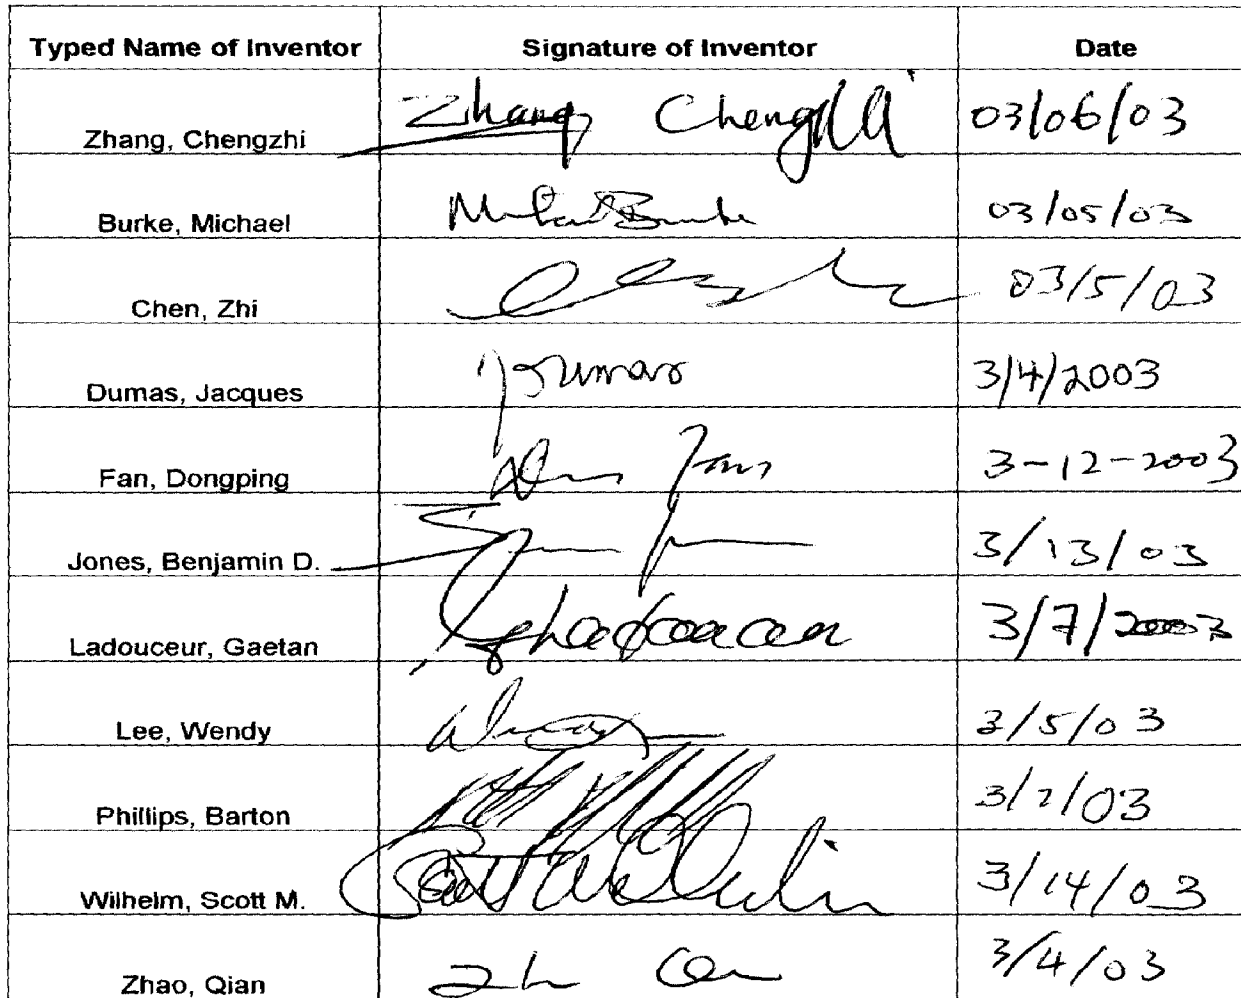 Typed Name of Inventor Signature of Inventor Date
Zhang, Chengzhi Zhang Chengzhi 03/06/03
Burke, Michael Michael Burke 03/05/03
Chen, Zhi 03/5/03
Dumas, Jacques JDumas 3/4/2003
Fan, Dongping Fan 3-12-2003
Jones, Benjamin D. 3/13/03
Ladouceur, Gaetan 3/7/2003
Lee, Wendy 3/5/03
Phillips, Barton 3/7/03
Wilhelm, Scott M. Scott Wilhelm 3/14/03
Zhao, Qian 3/4/03